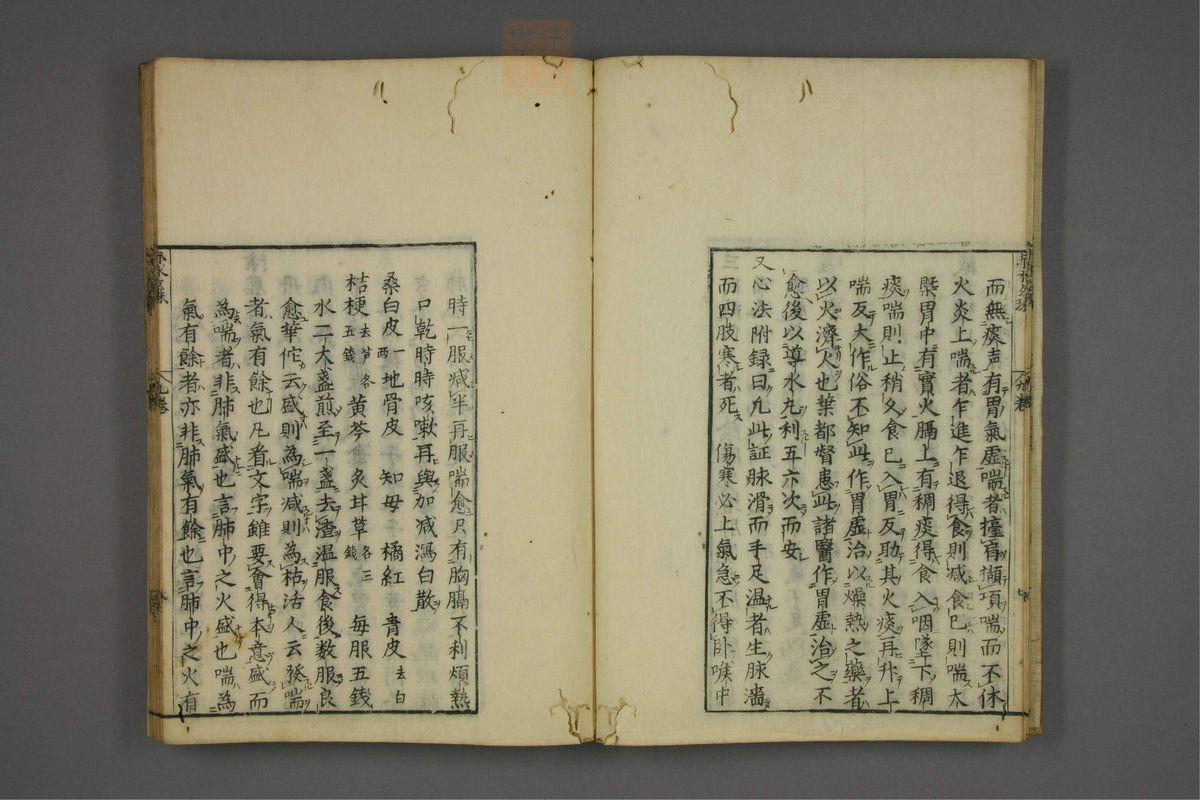 而無痰声有胃氣虛喘者擡肩擷項喘而不休
火炎上喘者乍進乍退得食則减食已則喘大
槩胃中有實火膈上有稠痰得食入咽墜下稠
痰喘則止稍久食已入胃反助其火痰再升上
喘反大作俗不知此作胃虛治以燥熱之藥者
以火濟火也葉都督患此諸醫作胃虛治之不
愈後以導水丸利五六次而安
又心法附録曰凡此証脉滑而手足温者生脉濇
而四肢寒者死　傷寒必上氣急不得卧喉中
時一服减半再服喘愈只有胸膈不利煩熱
口乾時時咳嗽再與加减瀉白散
桑白皮一两 地骨皮 知母 橘紅 青皮去白
桔梗去芦各五錢 黄芩 炙甘草各三錢 每服五錢
水二大盞煎至一盞去渣温服食後数服良
愈華佗云盛則為喘减則為枯活人云發喘
者氣有餘也凡看文字雖要會得本意盛而
為喘者非肺氣盛也言肺中之火盛也喘為
氣有餘者亦非肺氣有餘也言肺中之火有